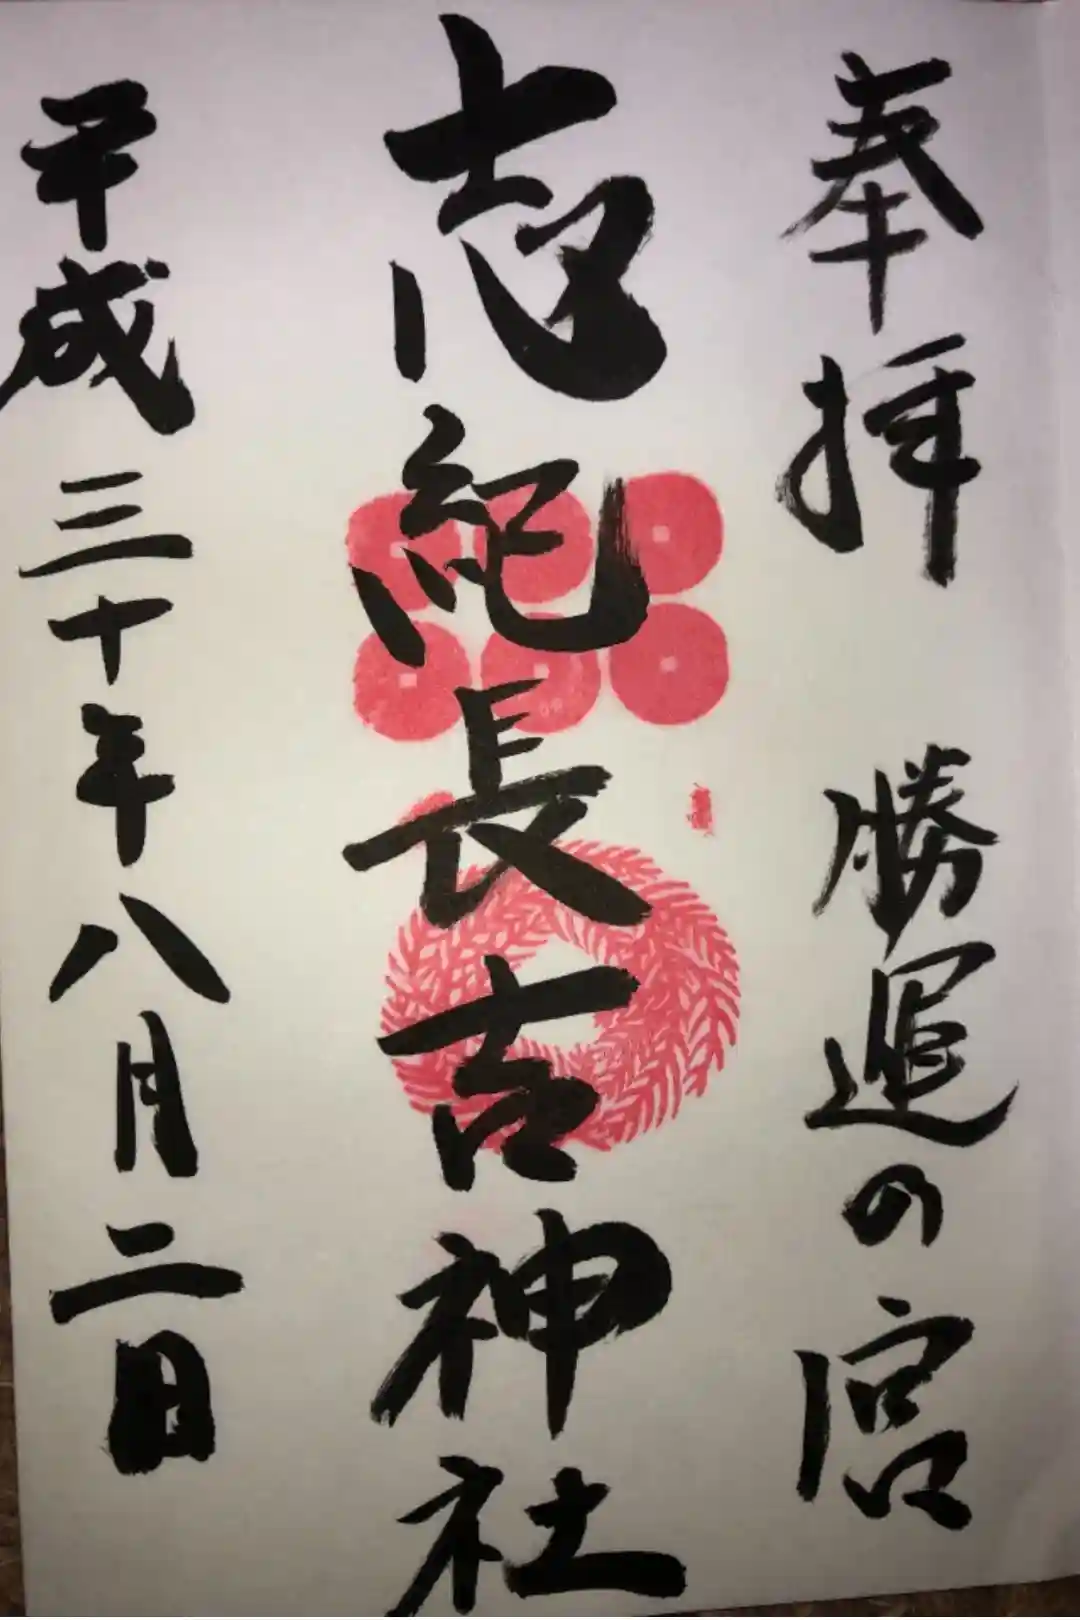 奉拝 勝運の宮
志紀長吉神社
平成三十年八月二日